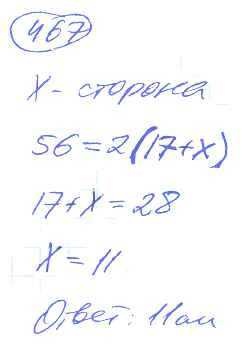 467
X - сторона
56 = 2(17+x)
17+x = 28
X = 11
Ответ: 11 см